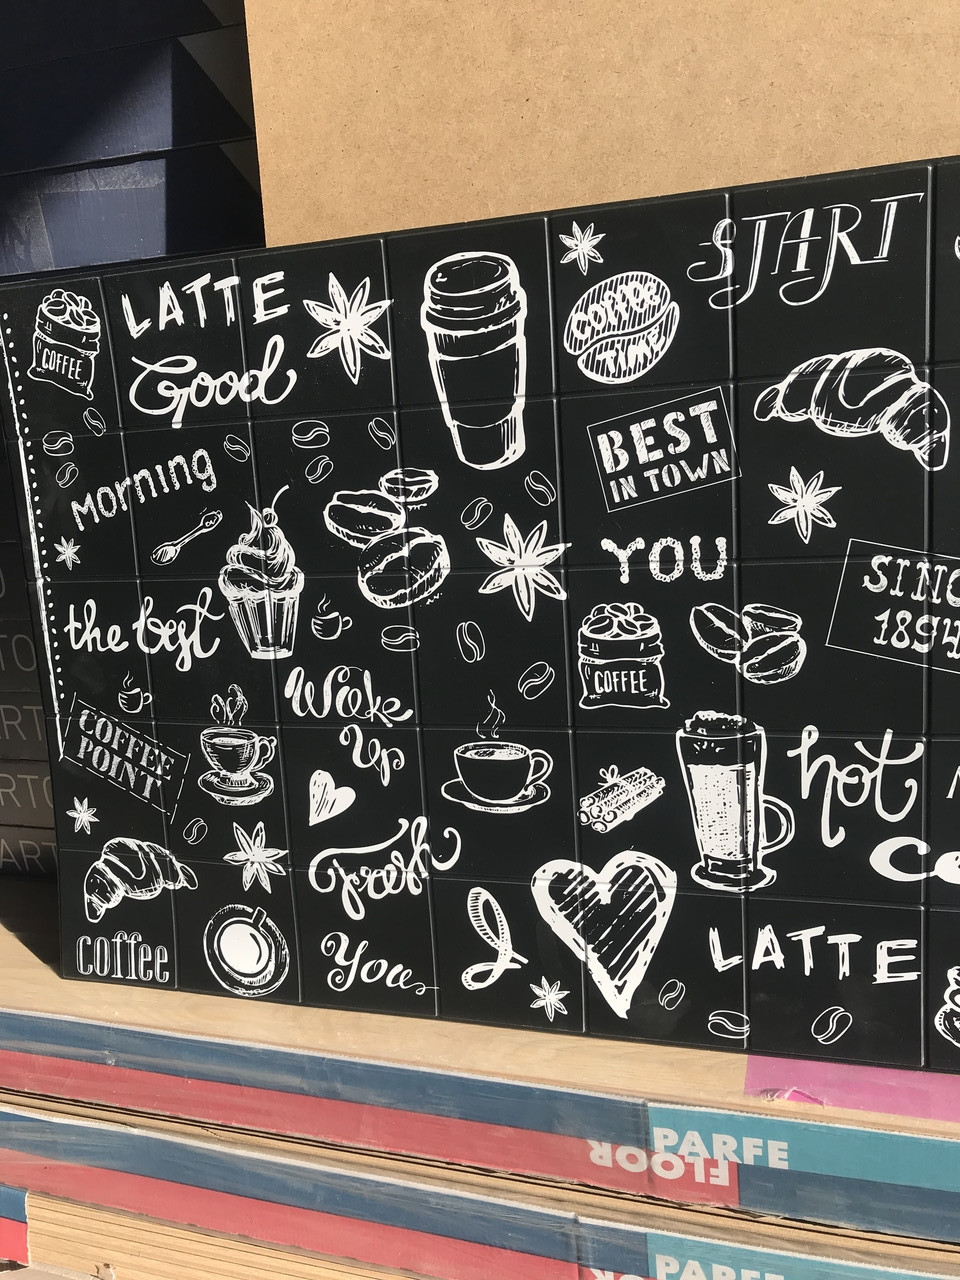 START
LATTE
Good
COFFEE
COFFEE
TIME
BEST
IN TOWN
morning
YOU
the best
1894
COFFEE
Wake
Up
COFFEE
POINT
hot
fresh
I
LATTE
coffee
You
PARFE
FLOOR
PARFE